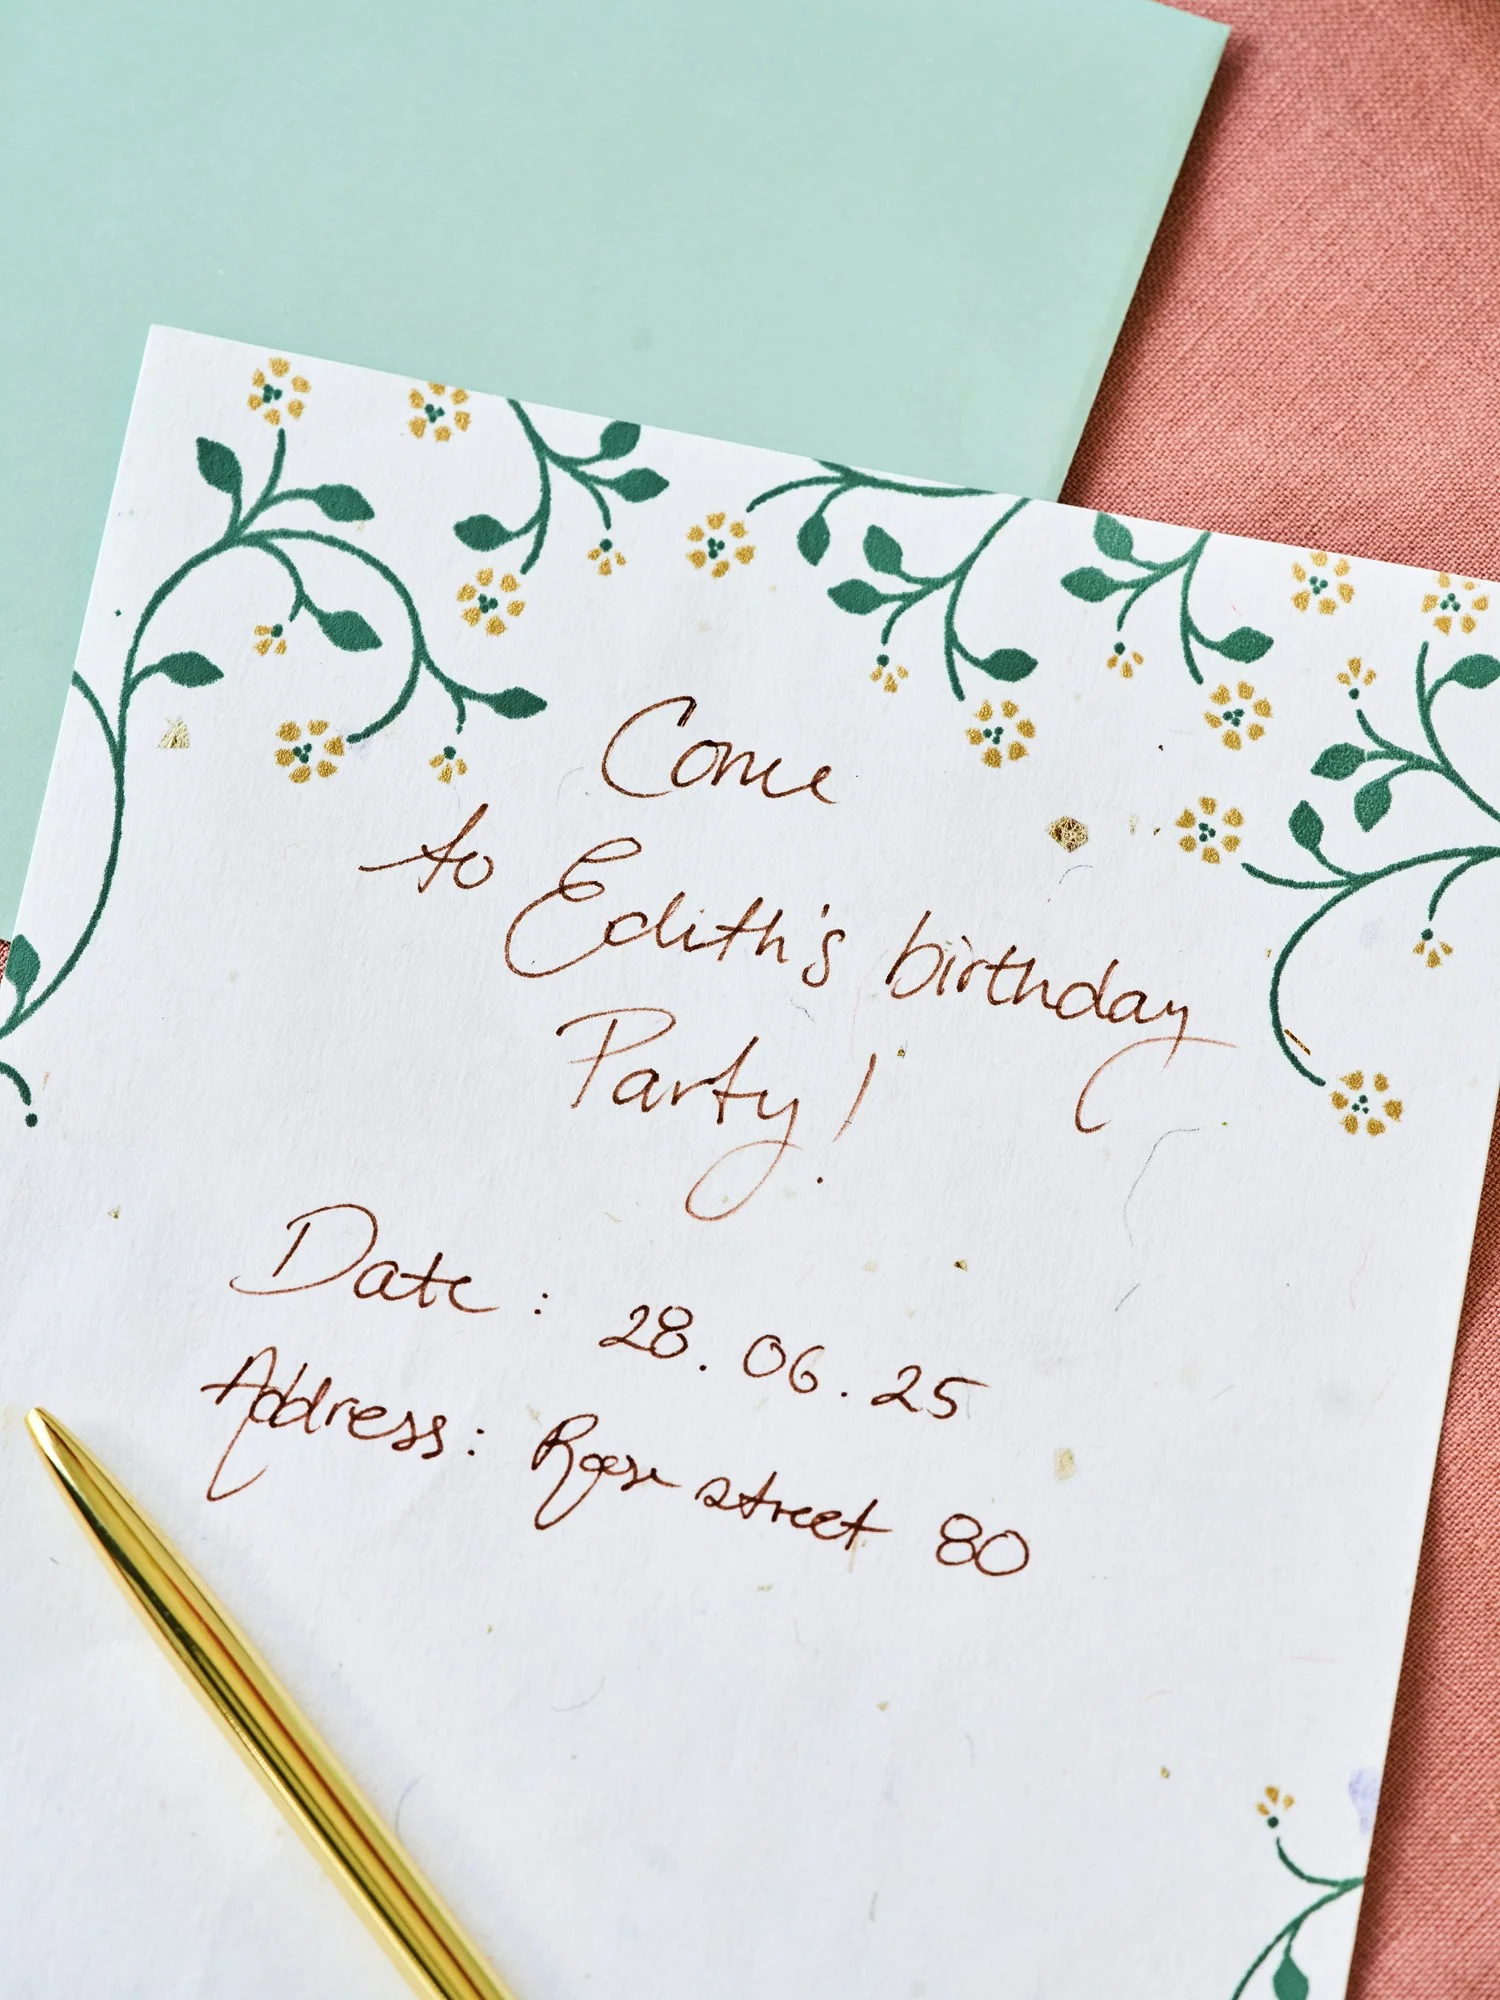 Come
to Edith's birthday
Party!
Date: 28.06.25
Address: Rose street 80